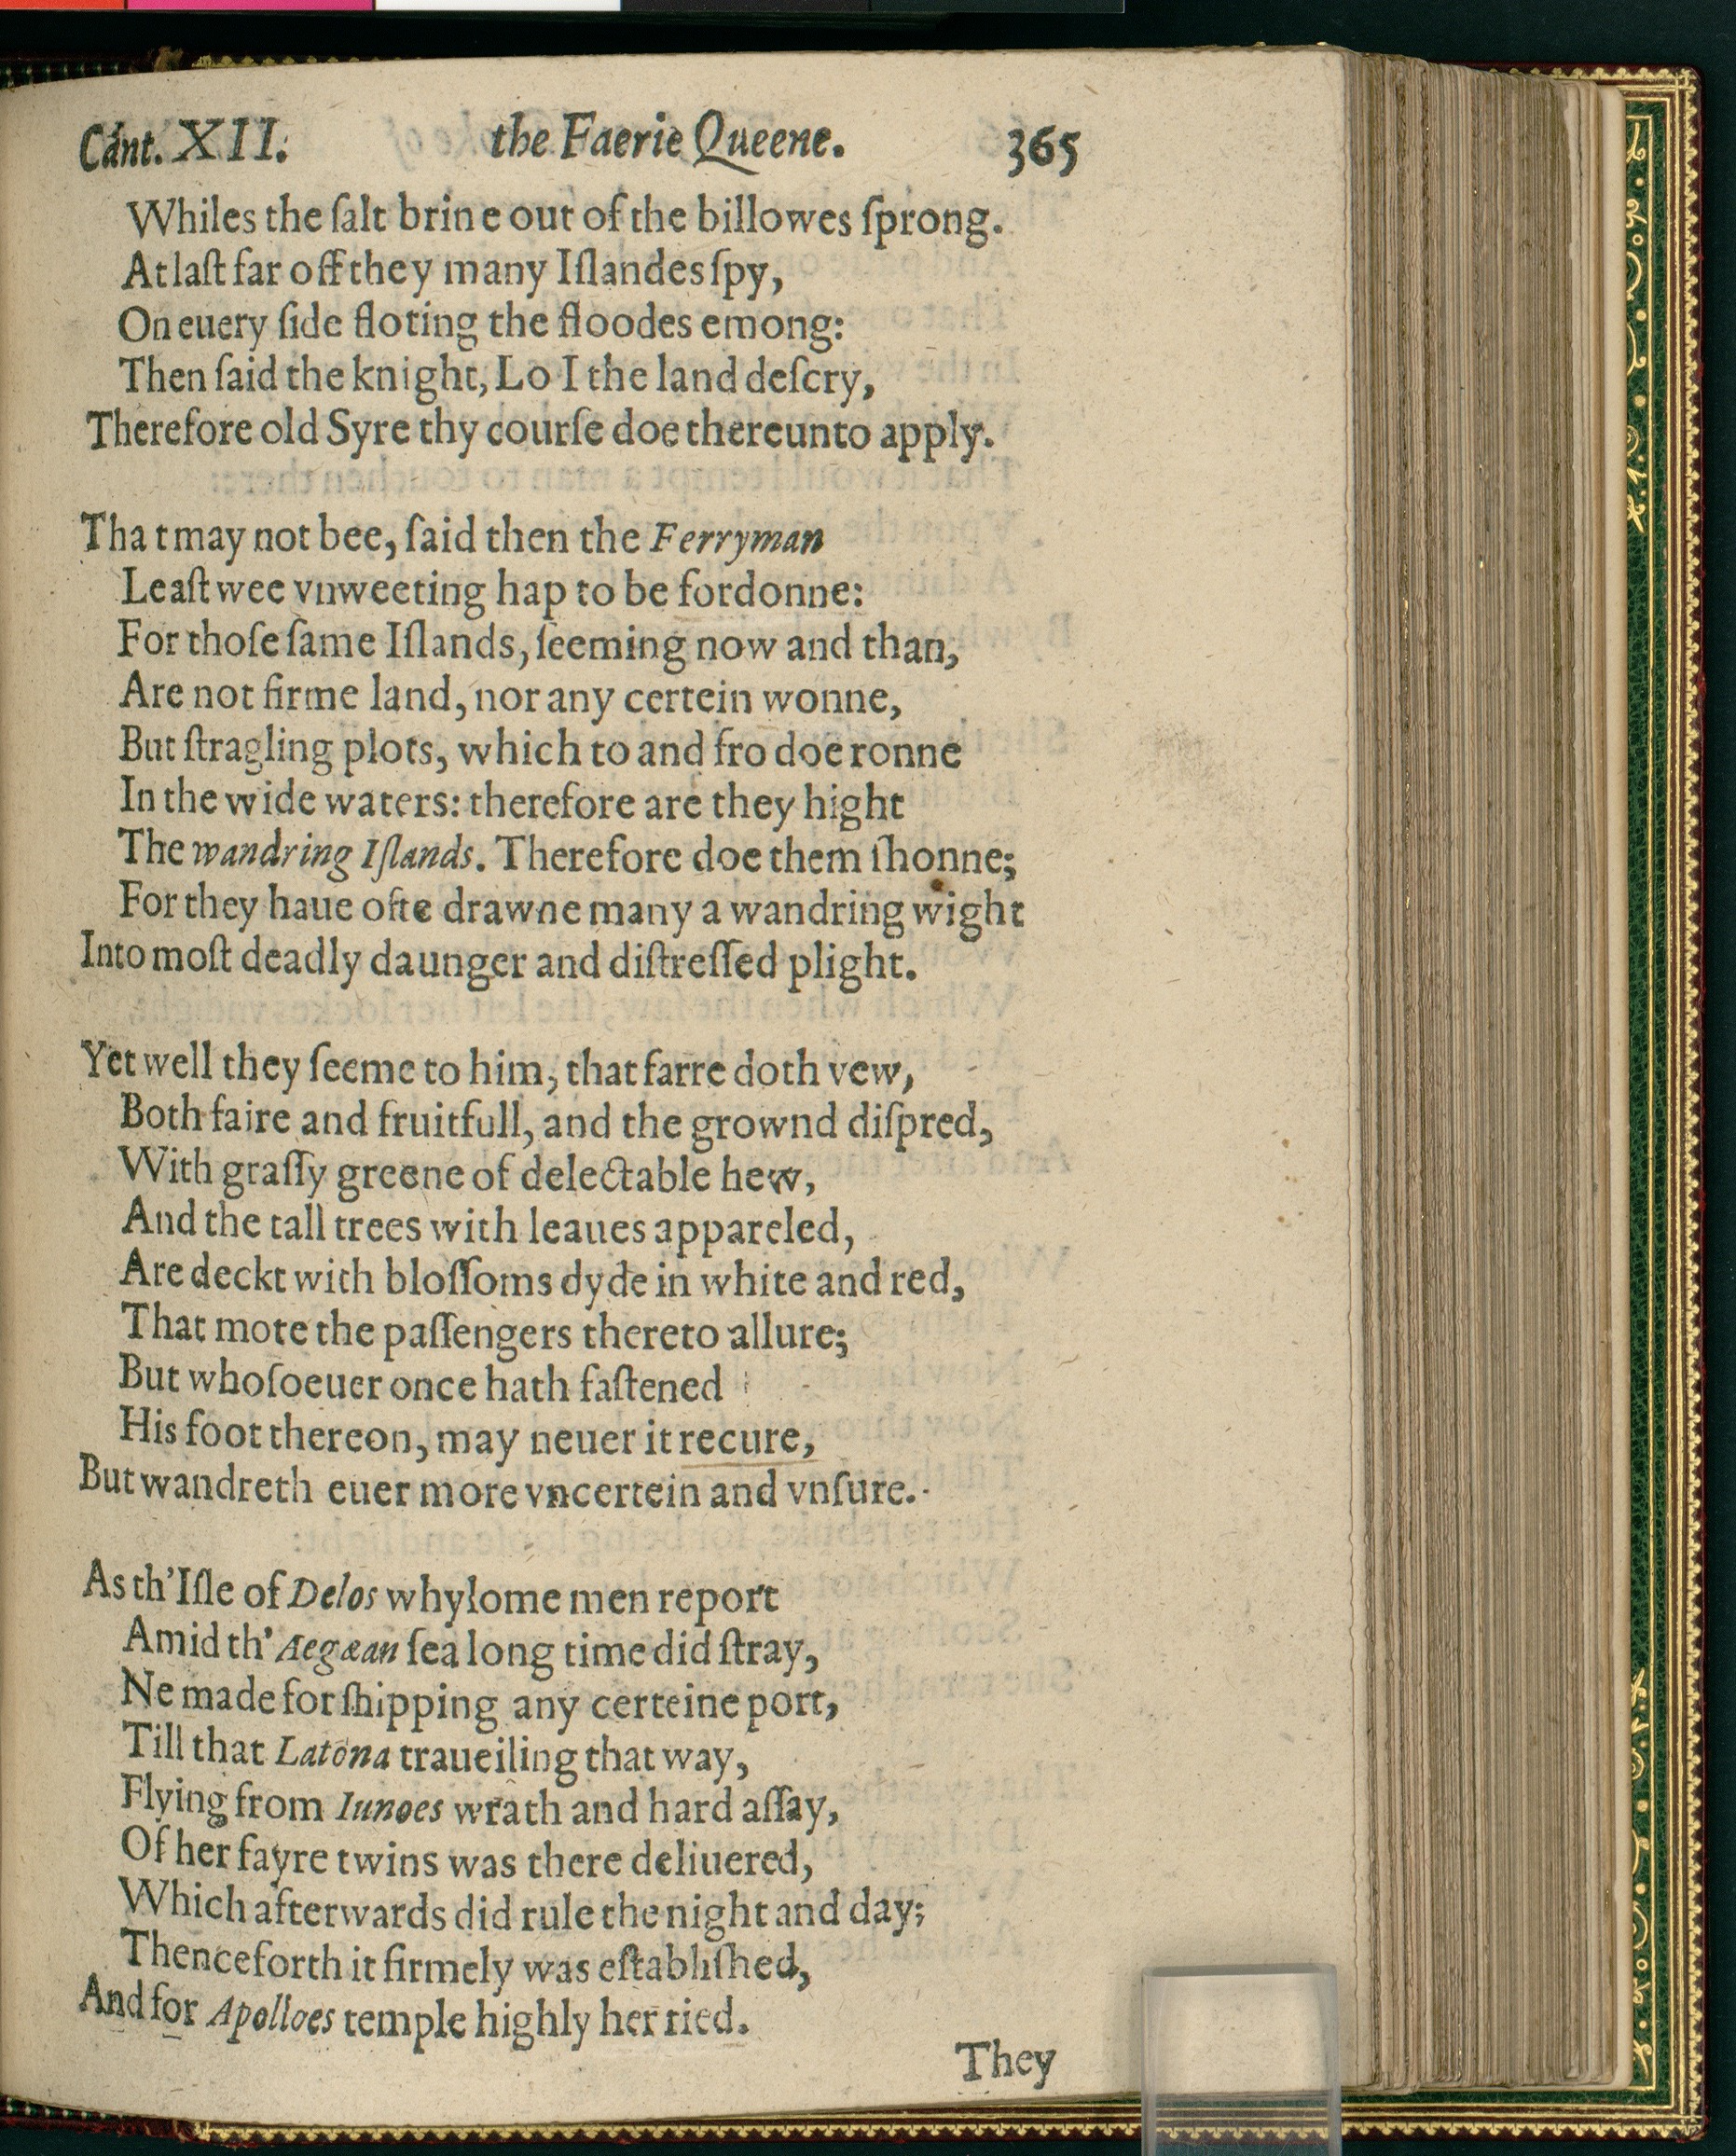 Cant. XII. the Faerie Queene. 365
Whiles the ſalt brine out of the billowes ſprong.
At laſt far off they many Iſlandes ſpy,
On euery ſide floting the floodes emong:
Then ſaid the knight, Lo I the land deſcry,
Therefore old Syre thy courſe doe thereunto apply.
That may not bee, ſaid then the Ferryman
Leaſt wee vnweeting hap to be fordonne:
For thoſe ſame Iſlands, ſeeming now and than,
Are not firme land, nor any certein wonne,
But ſtragling plots, which to and fro doe ronne
In the wide waters: therefore are they hight
The wandring Iſlands. Therefore doe them ſhonne;
For they haue ofte drawne many a wandring wight
Into moſt deadly daunger and diſtreſſed plight.
Yet well they ſeeme to him, that farre doth vew,
Both faire and fruitfull, and the grownd diſpred,
With graſſy greene of delectable hew,
And the tall trees with leaues appareled,
Are deckt with bloſſoms dyde in white and red,
That mote the paſſengers thereto allure;
But whoſoeuer once hath faſtened
His foot thereon, may neuer it recure,
But wandreth euer more vncertein and vnſure.
As th'Iſle of Delos whylome men report
Amid th' Aegæan ſea long time did ſtray,
Ne made for ſhipping any certeine port,
Till that Latona traueiling that way,
Flying from Iunoes wrath and hard aſſay,
Of her fayre twins was there deliuered,
Which afterwards did rule the night and day;
Thenceforth it firmely was eſtabliſhed,
And for Apolloes temple highly herried.
They